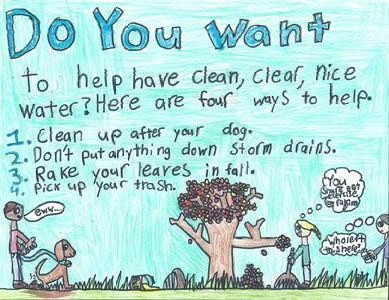 Do You Want
To help have clean, clear, nice
water? Here are four ways to help.
1. Clean up after your dog.
2. Don't put anything down storm drains.
3. Rake your leaves in fall.
4. Pick up your trash.
eww...
You
Sure get
exercise
by raking
who left
this here?